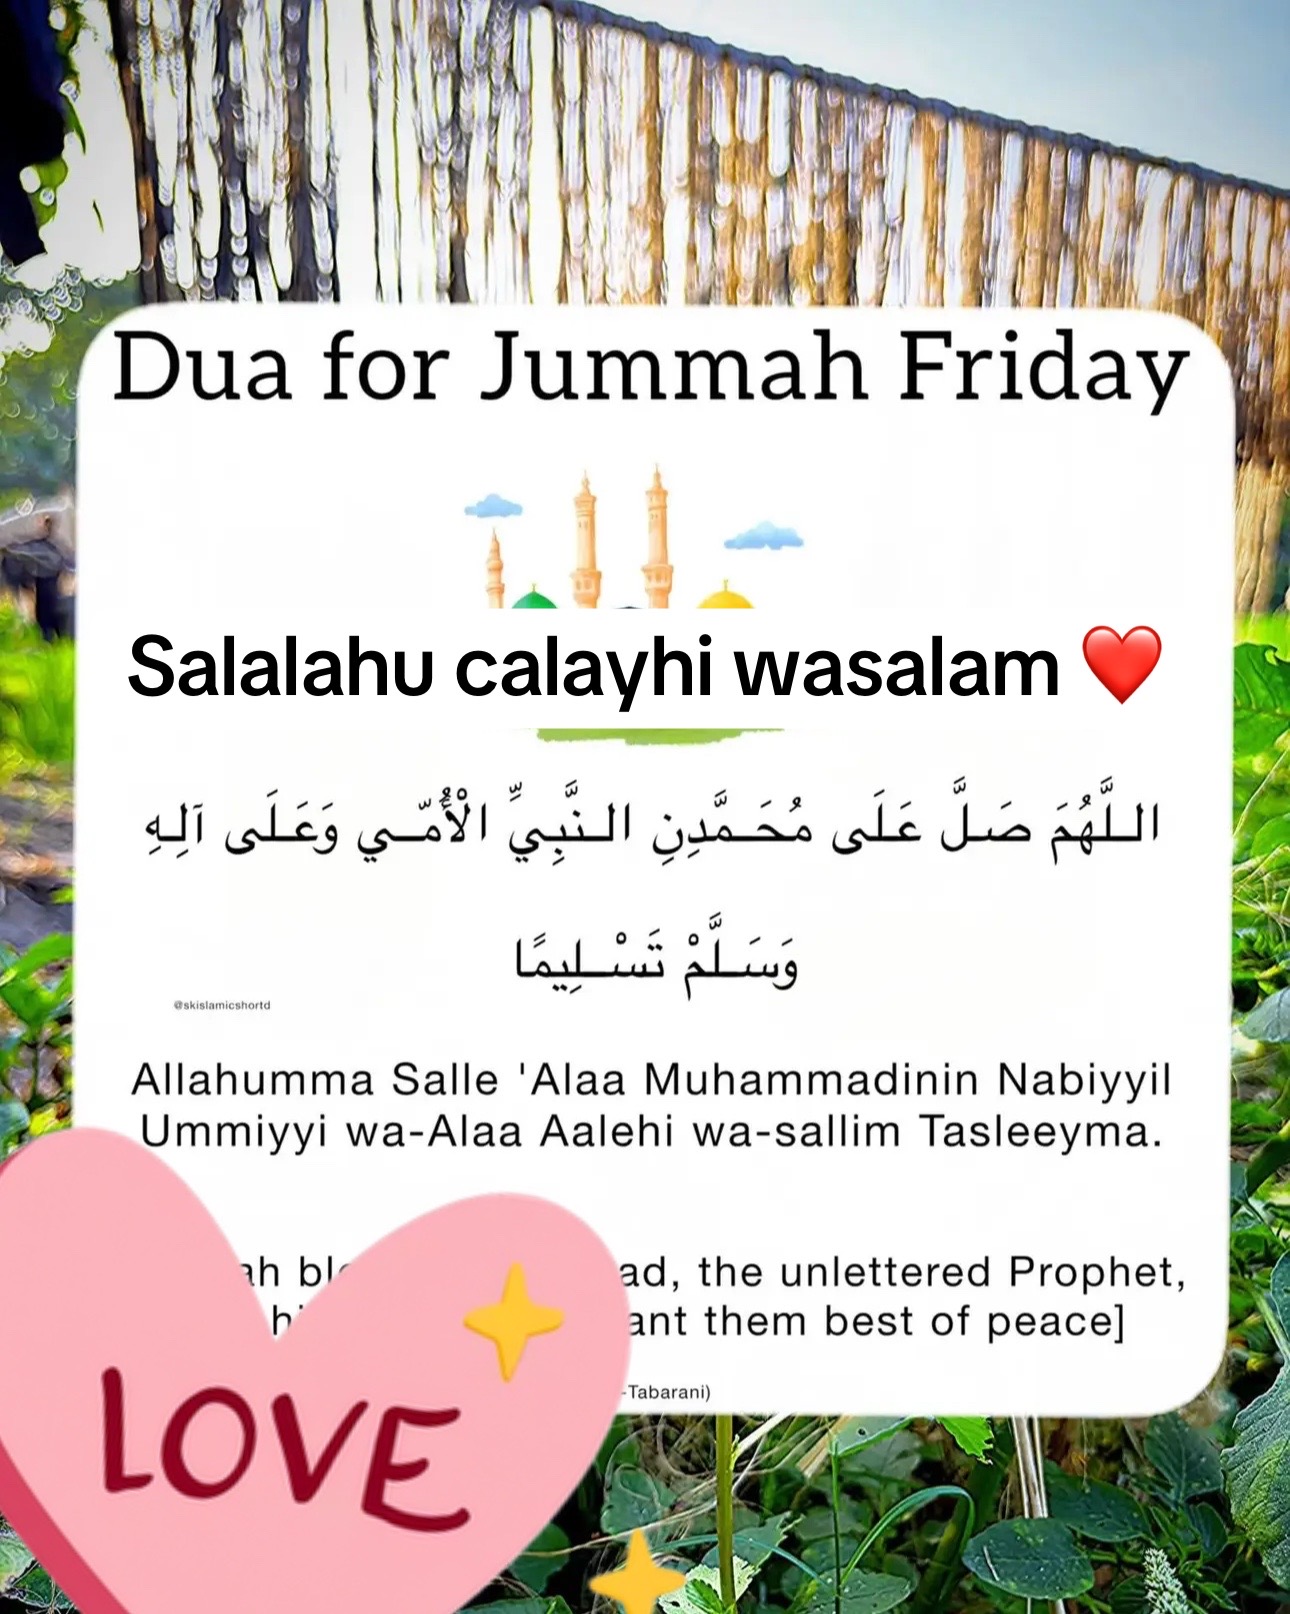 Dua for Jummah Friday
Salalahu calayhi wasalam ❤️
اللَّهُمَ صَلَّ عَلَى مُحَمَّدِنِ النَّبِيِّ الْأُمّي وَعَلَى آلِهِ
وَسَلَّمْ تَسْلِيمًا
@skislamicshortd
Allahumma Salle 'Alaa Muhammadinin Nabiyyil
Ummiyyi wa-Alaa Aalehi wa-sallim Tasleeyma.
the unlettered Prophet,
them best of peace]
-Tabarani)
LOVE